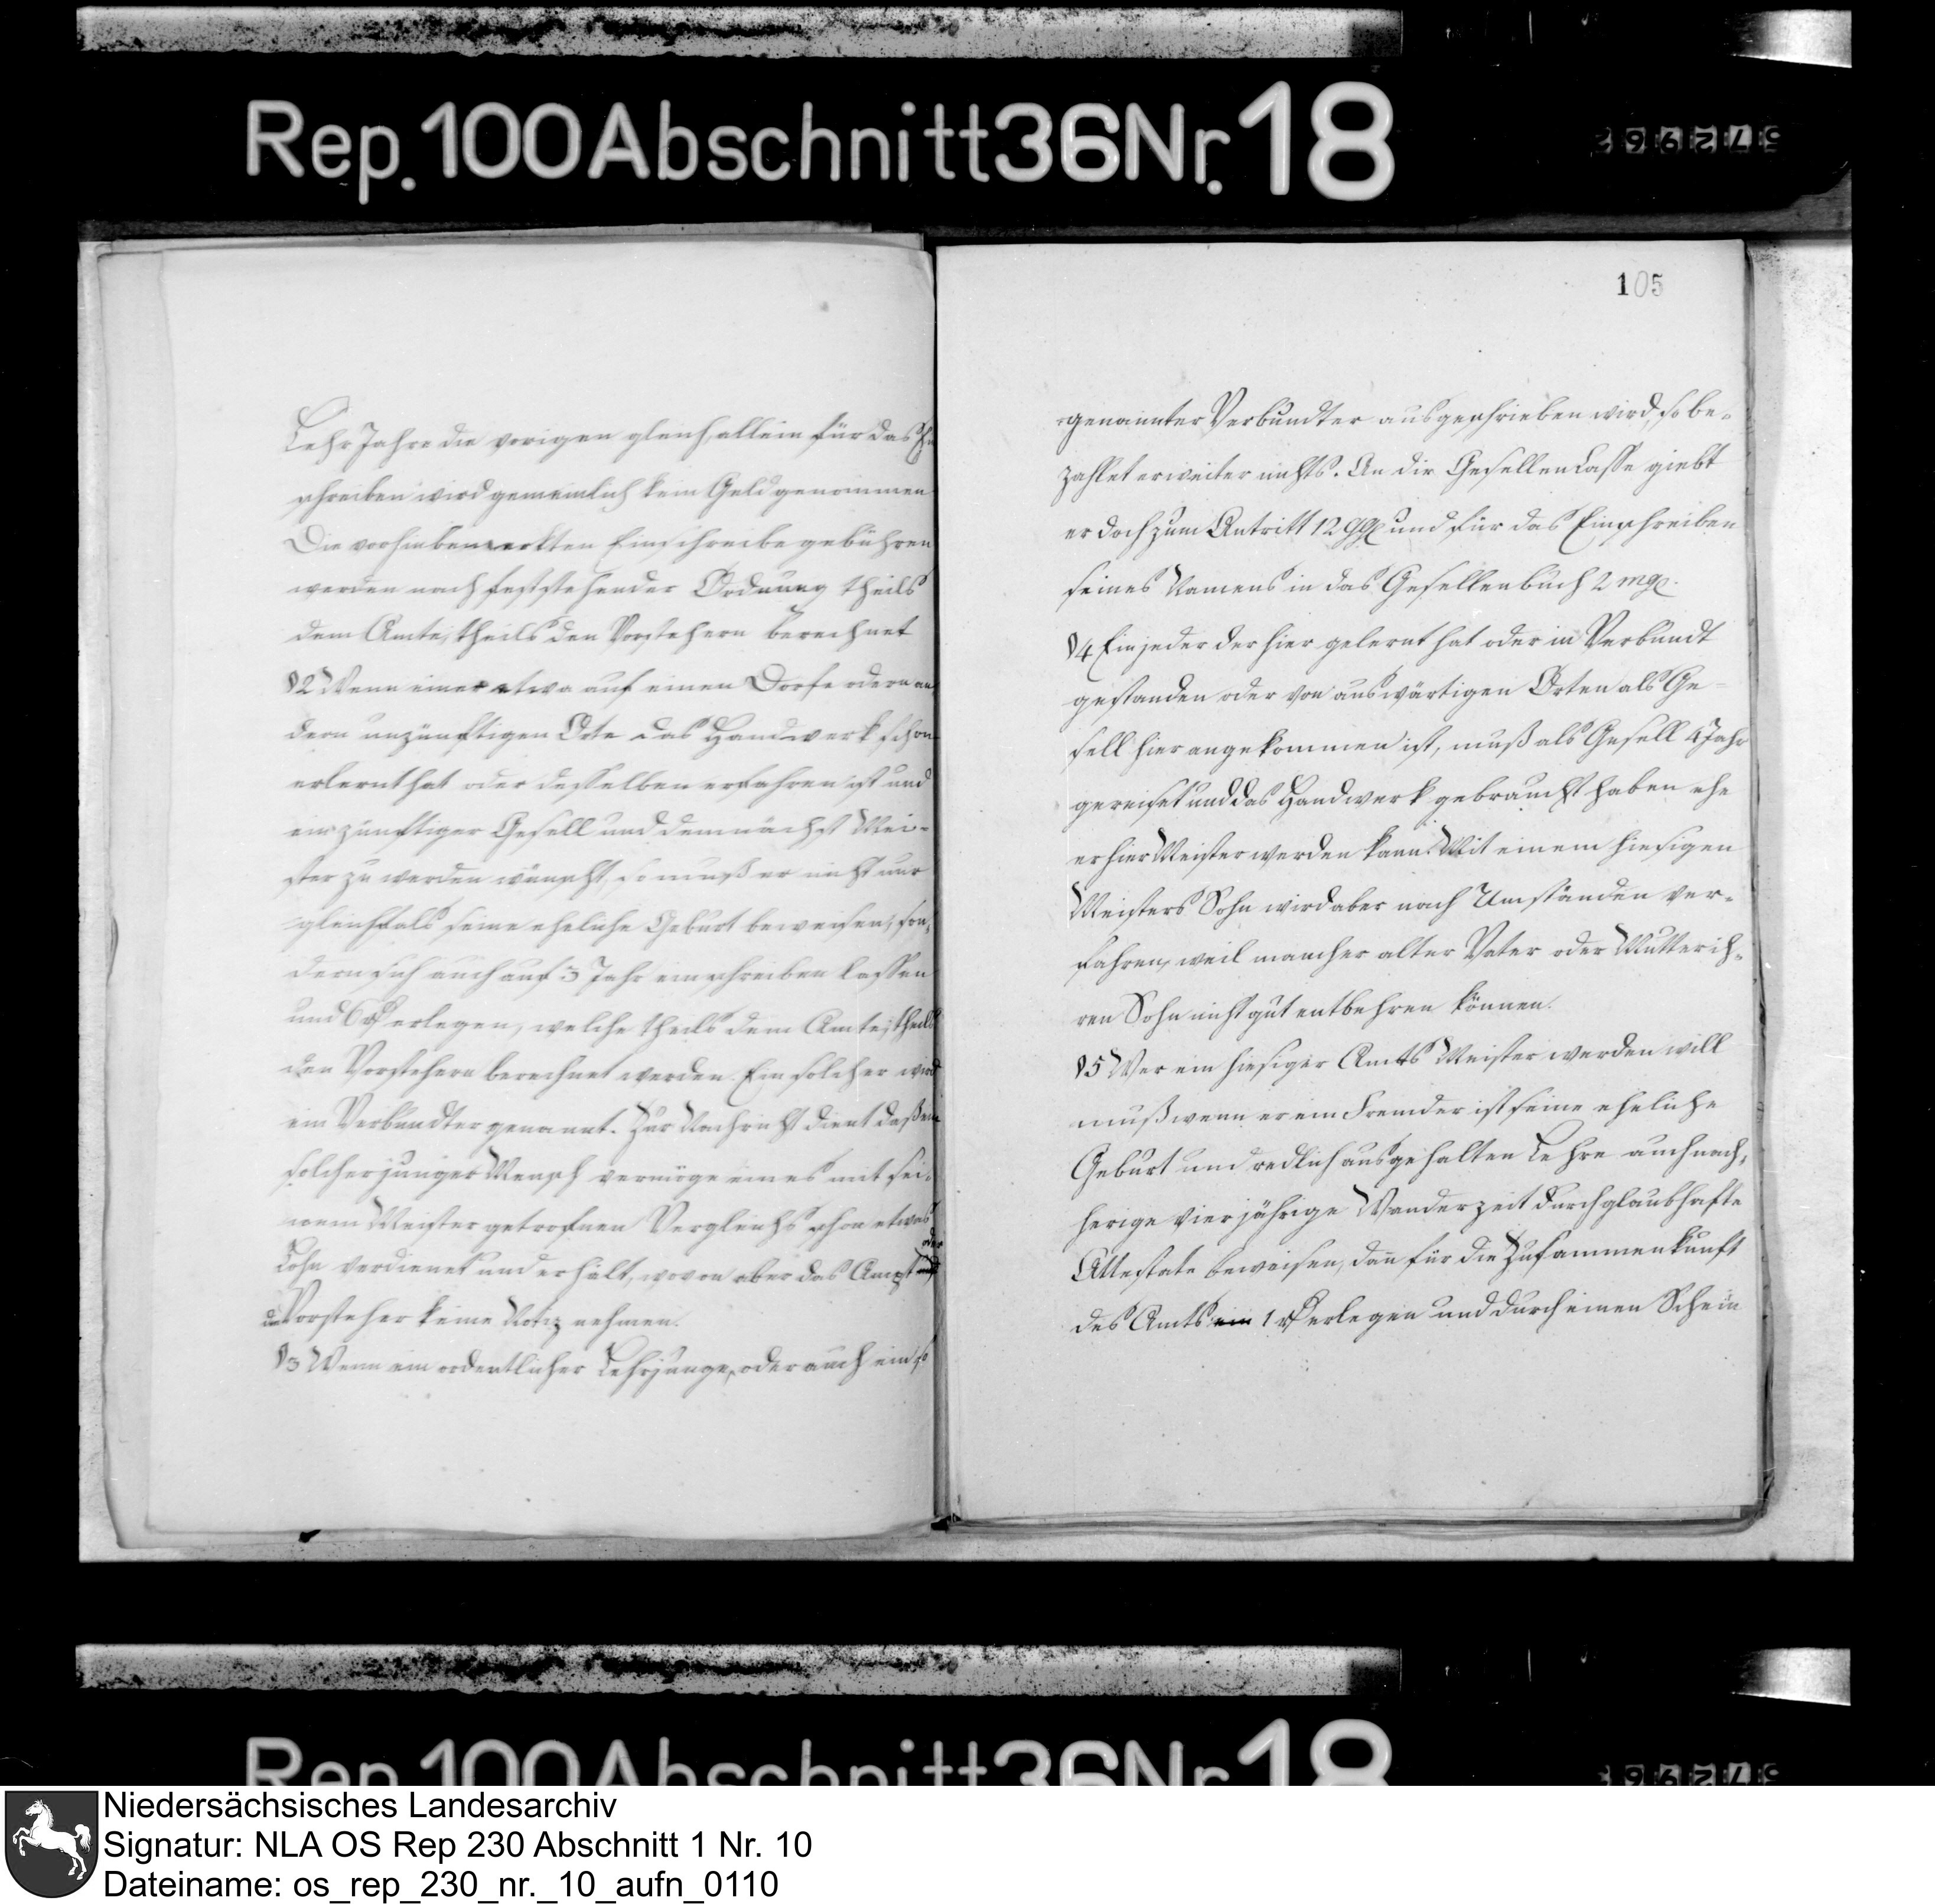 Rep. 100 Abschnitt 36 Nr. 18
572962
Lehr Jahre die vorigen gleich, allein für das Ein
schreiben wird gemeinlich kein Geld genommen
Die vorhinbemerkten Einschreibegebühren
werden nach feststehender Ordnung theils
dem Amte, theils den Vorstehern berechnet
§2 Wenn einer etwa auf einen Dorfe oder an
dern unzünftigen Orte das Handwerk schon
erlernt hat oder desselben erfahren ist und
ein zünftiger Gesell und demnächst Mei-
ster zu werden wünscht, so muß er nicht nur
gleichfals seine eheliche Geburt beweisen, son-
dern sich auch auf 3 Jahr einschreiben lassen
und 6 rt erlegen, welche theils dem Amte, theils
den Vorstehern berechnet werden. Ein solcher wird
ein Verbundter genannt. Zur Nachricht dient daß ein
solcher junger Mensch vermöge eines mit sei-
nem Meister getrofnen Vergleichs schon etwas
Lohn verdienet und erhält, wovon aber das Ampt oder
die Vorsteher keine Notiz nehmen.
§3 Wenn ein ordentlicher Lehrjunge, oder auch ein so
105
genannter Verbundter ausgeschrieben wird, so be-
zahlet er weiter nichts. An die Gesellen Casse giebt
er doch zum Antritt 12 ggl und für das Einschreiben
seines Namens in das Gesellenbuch 2 mgl.
§4 Ein jeder der hier gelernt hat oder in Verbundt
gestanden oder von auswärtigen Orten als Ge-
sell hier angekommen ist, muß als Gesell 4 Jahr
gereiset und das Handwerk gebraucht haben ehe
er hier Meister werden kann. Mit einem hiesigen
Meisters Sohn wird aber nach Umständen ver-
fahren, weil mancher alter Vater oder Mutter ih-
ren Sohn nicht gut entbehren können.
§5 Wer ein hiesiger Amts Meister werden will
muß wenn er ein Fremder ist seine eheliche
Geburt und redlich ausgehalten Lehre auch nach-
herige vierjährige Wanderzeit durch glaubhafte
Attestate beweisen, dan für die Zusammenkunft
des Amts ein 1 rt erlegen und durch einen Schein
Rep. 100 Abschnitt 36 Nr. 18
572962
Niedersächsisches Landesarchiv
Signatur: NLA OS Rep 230 Abschnitt 1 Nr. 10
Dateiname: os_rep_230_nr._10_aufn_0110